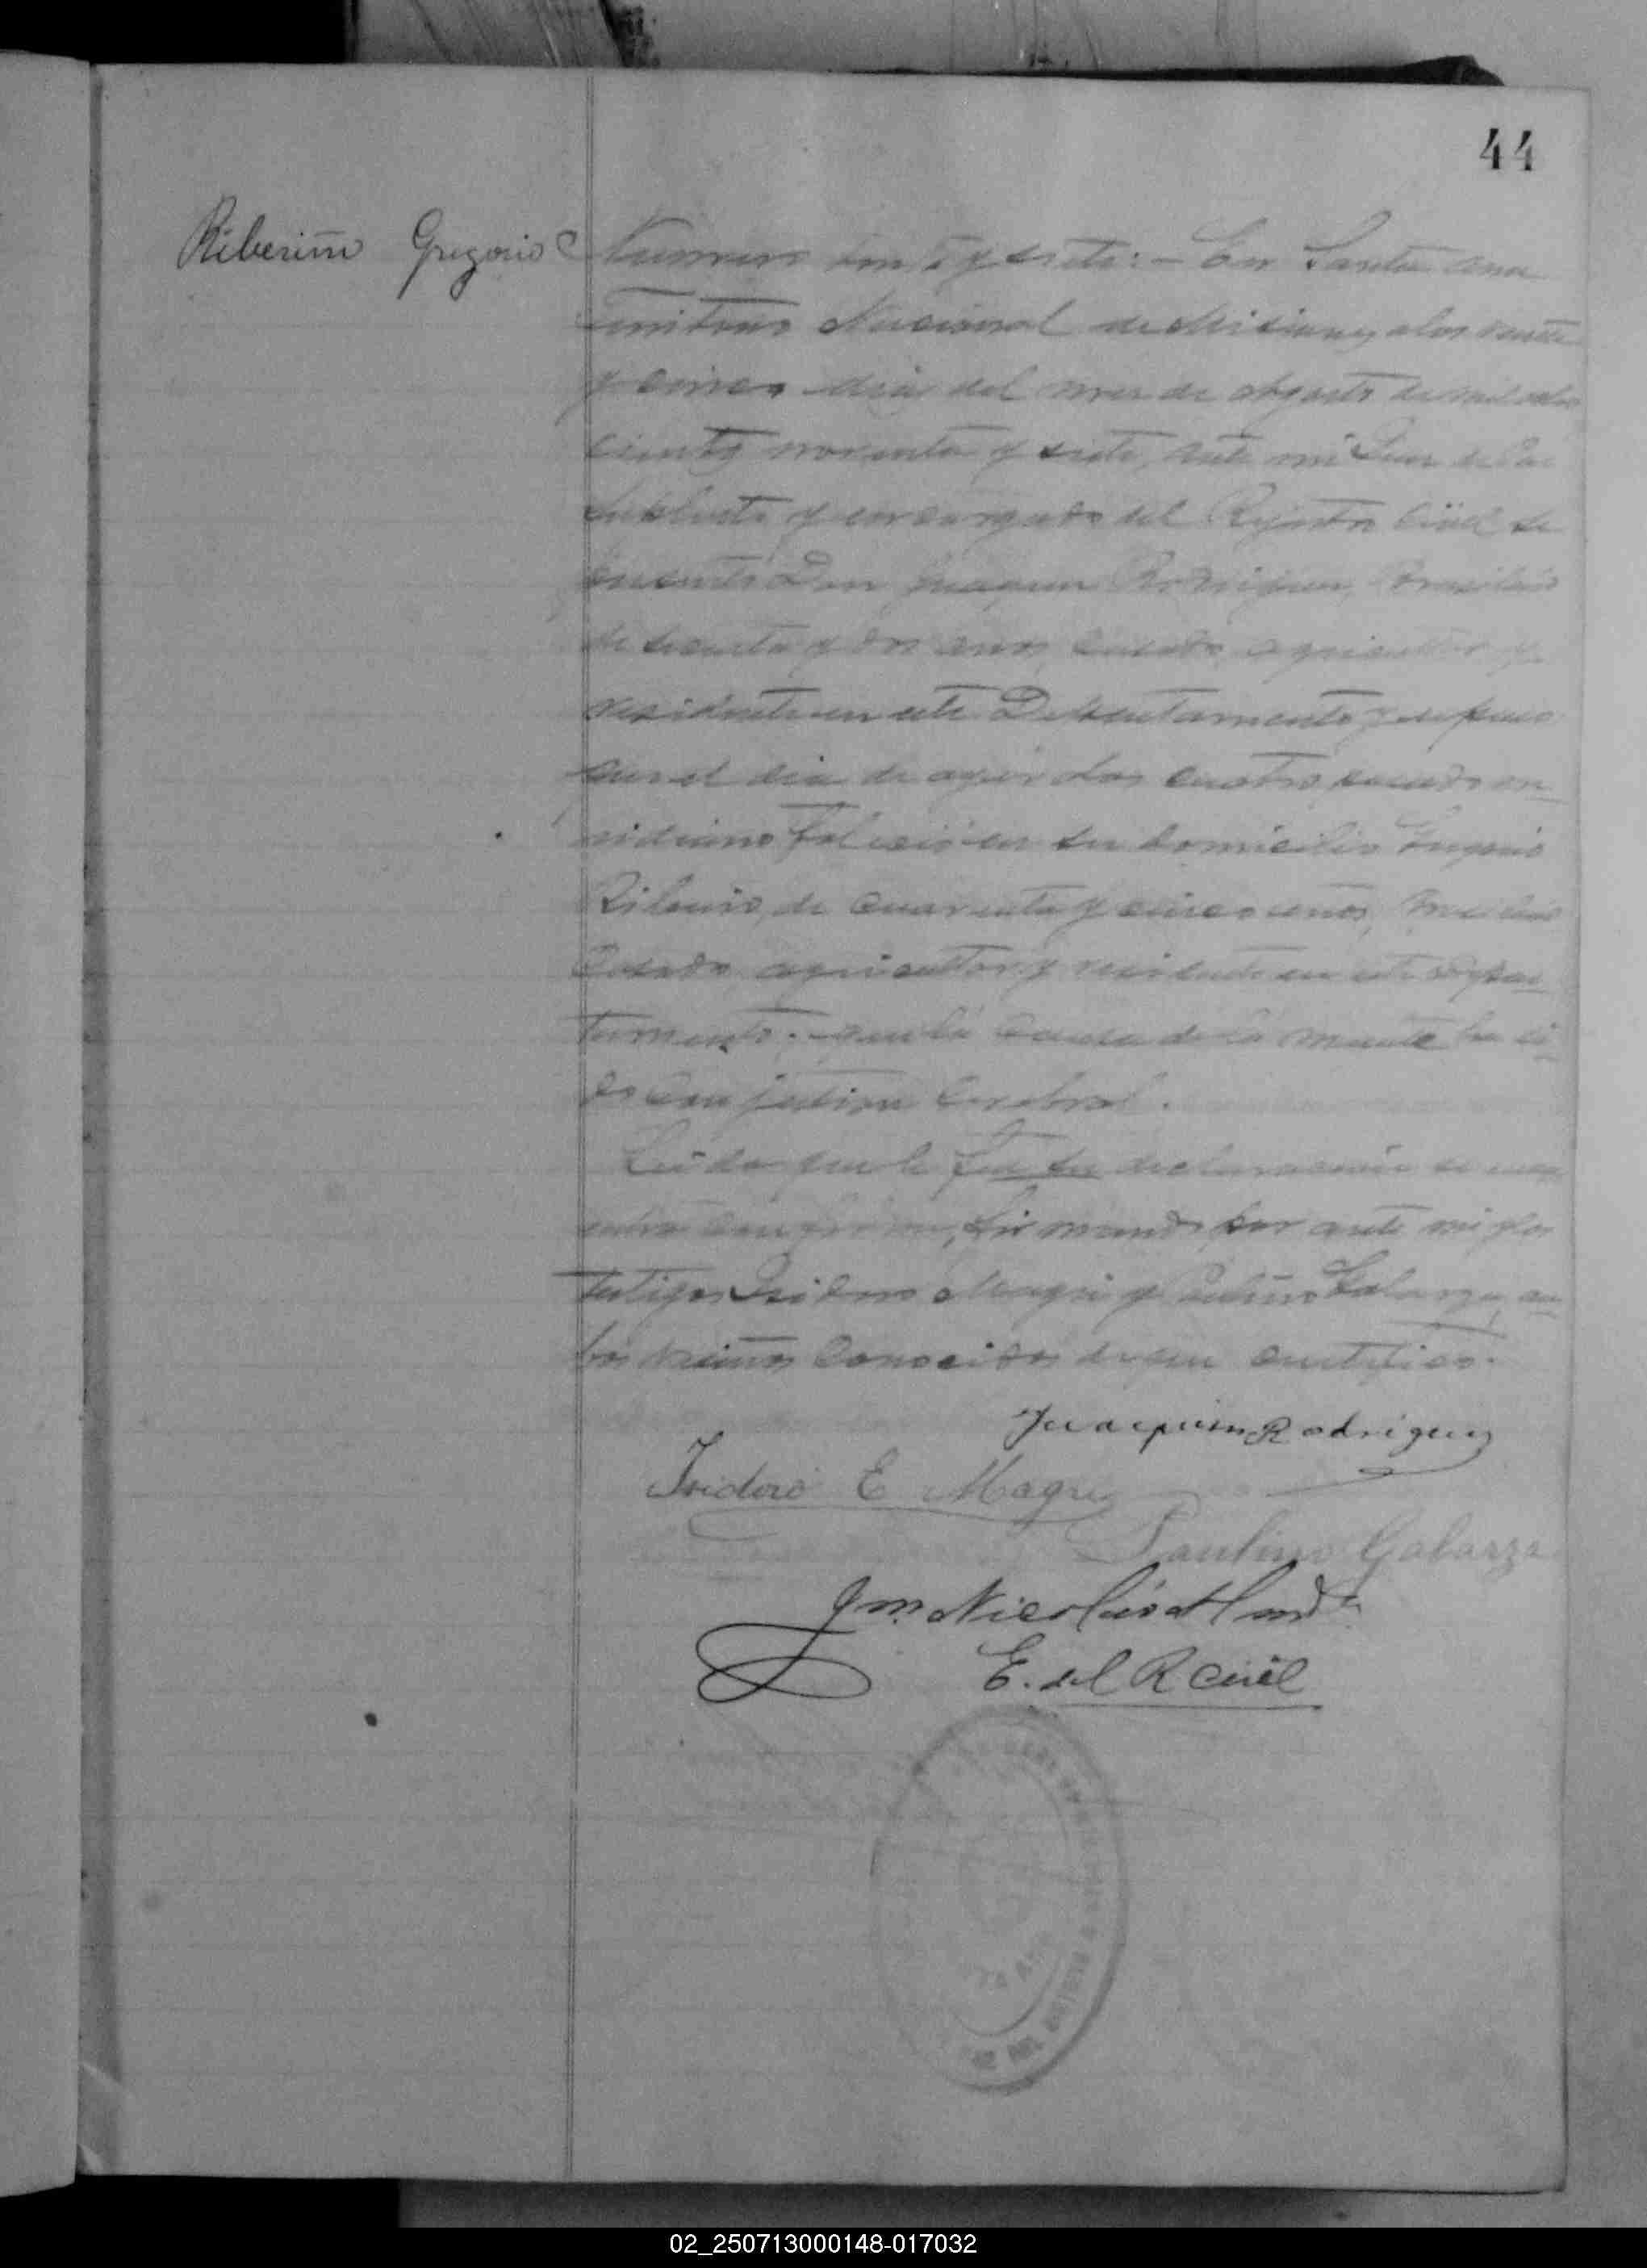 44
Riberiño Gregorio
Numero y siete: – En Santa Ana
Territorio Nacional de Misiones a los veinte
y cinco dias del mes de Agosto de mil ocho
cientos noventa y siete, ante mi Juez de Paz
Suplente y encargado del Rejistro Civil se
presentó Don Juaquin Rodriguez, Brasilero
de y dos anos, casado agricultor y
residente en este Departamento y expuso
que el dia de ayer a las cuatro pasado me-
ridiano falleció en su domicilio
de cuarenta y cinco años,
casado agricultor y residente en este Depar-
tamento: – que la causa de la muerte ha si-
do conjestion cerebral.
Leida que le fue su declaracion se
conforme, firmando por ante mi y los
testigos Isidoro Magri y Paulino Galarza, am-
bos vecinos conocidos de que certifico.
Juaquim Rodriguez
Isidoro E Magri
Paulino Galarza
Nicolás
E. del R Civil
02_250713000148-017032